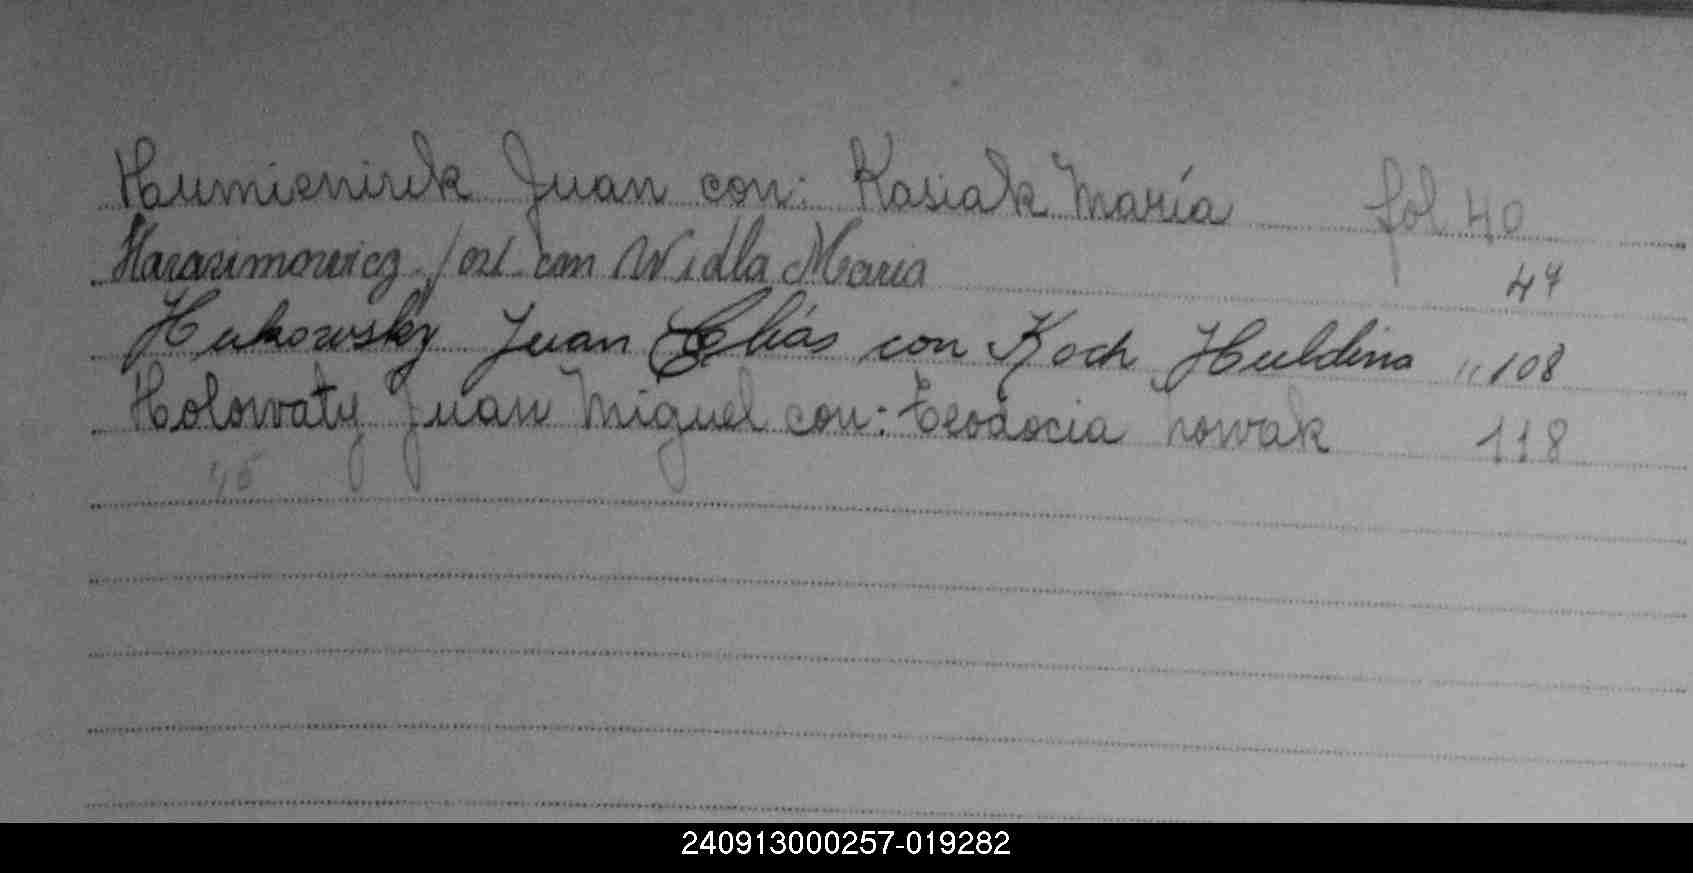 Humieniuk Juan con: Kasiak María fol 40
Harasimowicz José con Widla Maria 47
Hukowsky Juan Elías con Koch Huldina " 108
Holowaty Juan Miguel con: Teodocia Nowak 118
240913000257-019282